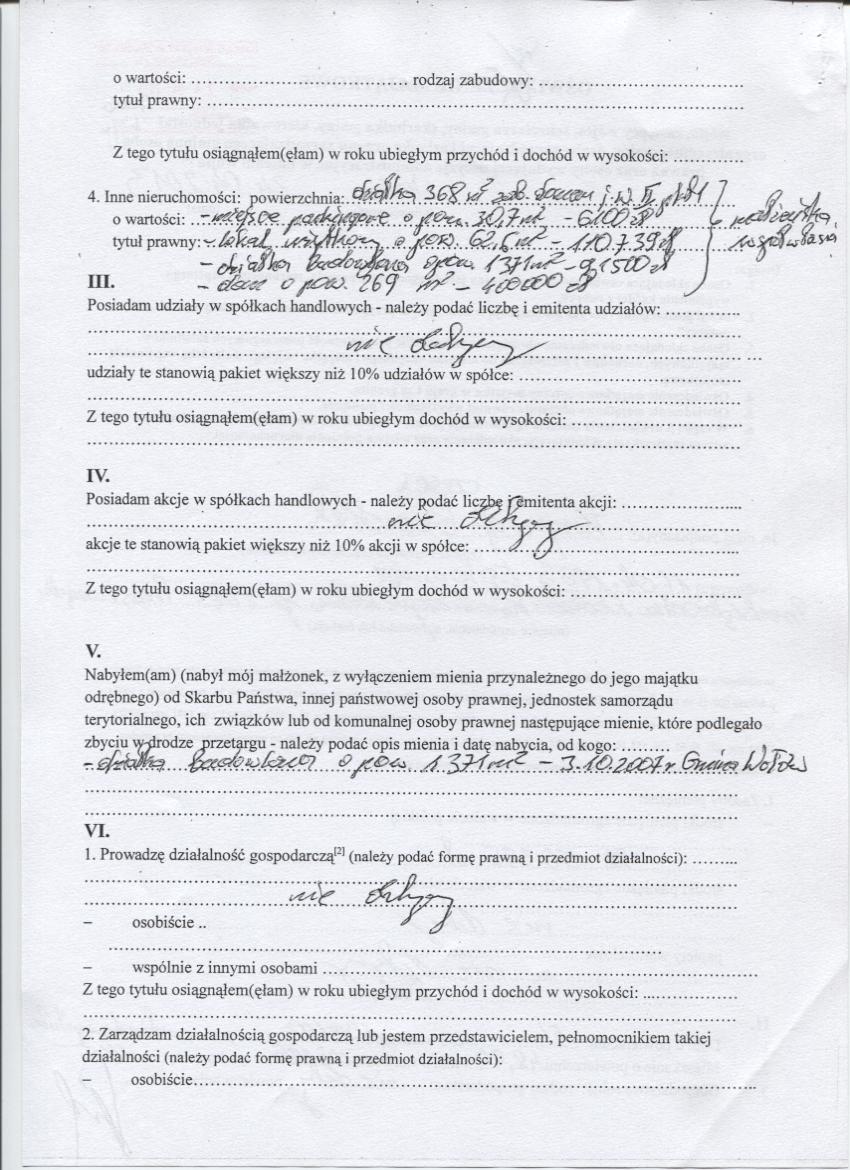 o wartości: ................................................ rodzaj zabudowy: ..............................................
tytuł prawny: ........................................................................................................................
Z tego tytułu osiągnąłem(ęłam) w roku ubiegłym przychód i dochód w wysokości: ................
4. Inne nieruchomości: powierzchnia: działka 368 m² zab. domem j.w. II pkt 1
o wartości: - miejsce parkingowe o pow. 30,7 m² - 6100 zł małżeńska
tytuł prawny: - lokal użytkowy o pow. 62,6 m² - 110.739 zł współwłasn
- działka budowlana o pow. 1371 m² - 91500 zł
III. - dom o pow. 269 m² - 400000 zł
Posiadam udziały w spółkach handlowych - należy podać liczbę i emitenta udziałów: ................
nie dotyczy
udziały te stanowią pakiet większy niż 10% udziałów w spółce: ................................................
Z tego tytułu osiągnąłem(ęłam) w roku ubiegłym dochód w wysokości: ....................................
IV.
Posiadam akcje w spółkach handlowych - należy podać liczbę i emitenta akcji: ..........................
nie dotyczy
akcje te stanowią pakiet większy niż 10% akcji w spółce: ..........................................................
Z tego tytułu osiągnąłem(ęłam) w roku ubiegłym dochód w wysokości: ....................................
V.
Nabyłem(am) (nabył mój małżonek, z wyłączeniem mienia przynależnego do jego majątku
odrębnego) od Skarbu Państwa, innej państwowej osoby prawnej, jednostek samorządu
terytorialnego, ich związków lub od komunalnej osoby prawnej następujące mienie, które podlegało
zbyciu w drodze przetargu - należy podać opis mienia i datę nabycia, od kogo: .........
- działka budowlana o pow. 1371 m² - 3.10.2007 r. Gmina Wołów
VI.
1. Prowadzę działalność gospodarczą[2] (należy podać formę prawną i przedmiot działalności): .........
nie dotyczy
– osobiście ..
– wspólnie z innymi osobami ..................................................................................................
Z tego tytułu osiągnąłem(ęłam) w roku ubiegłym przychód i dochód w wysokości: ......................
2. Zarządzam działalnością gospodarczą lub jestem przedstawicielem, pełnomocnikiem takiej
działalności (należy podać formę prawną i przedmiot działalności):
– osobiście..............................................................................................................................